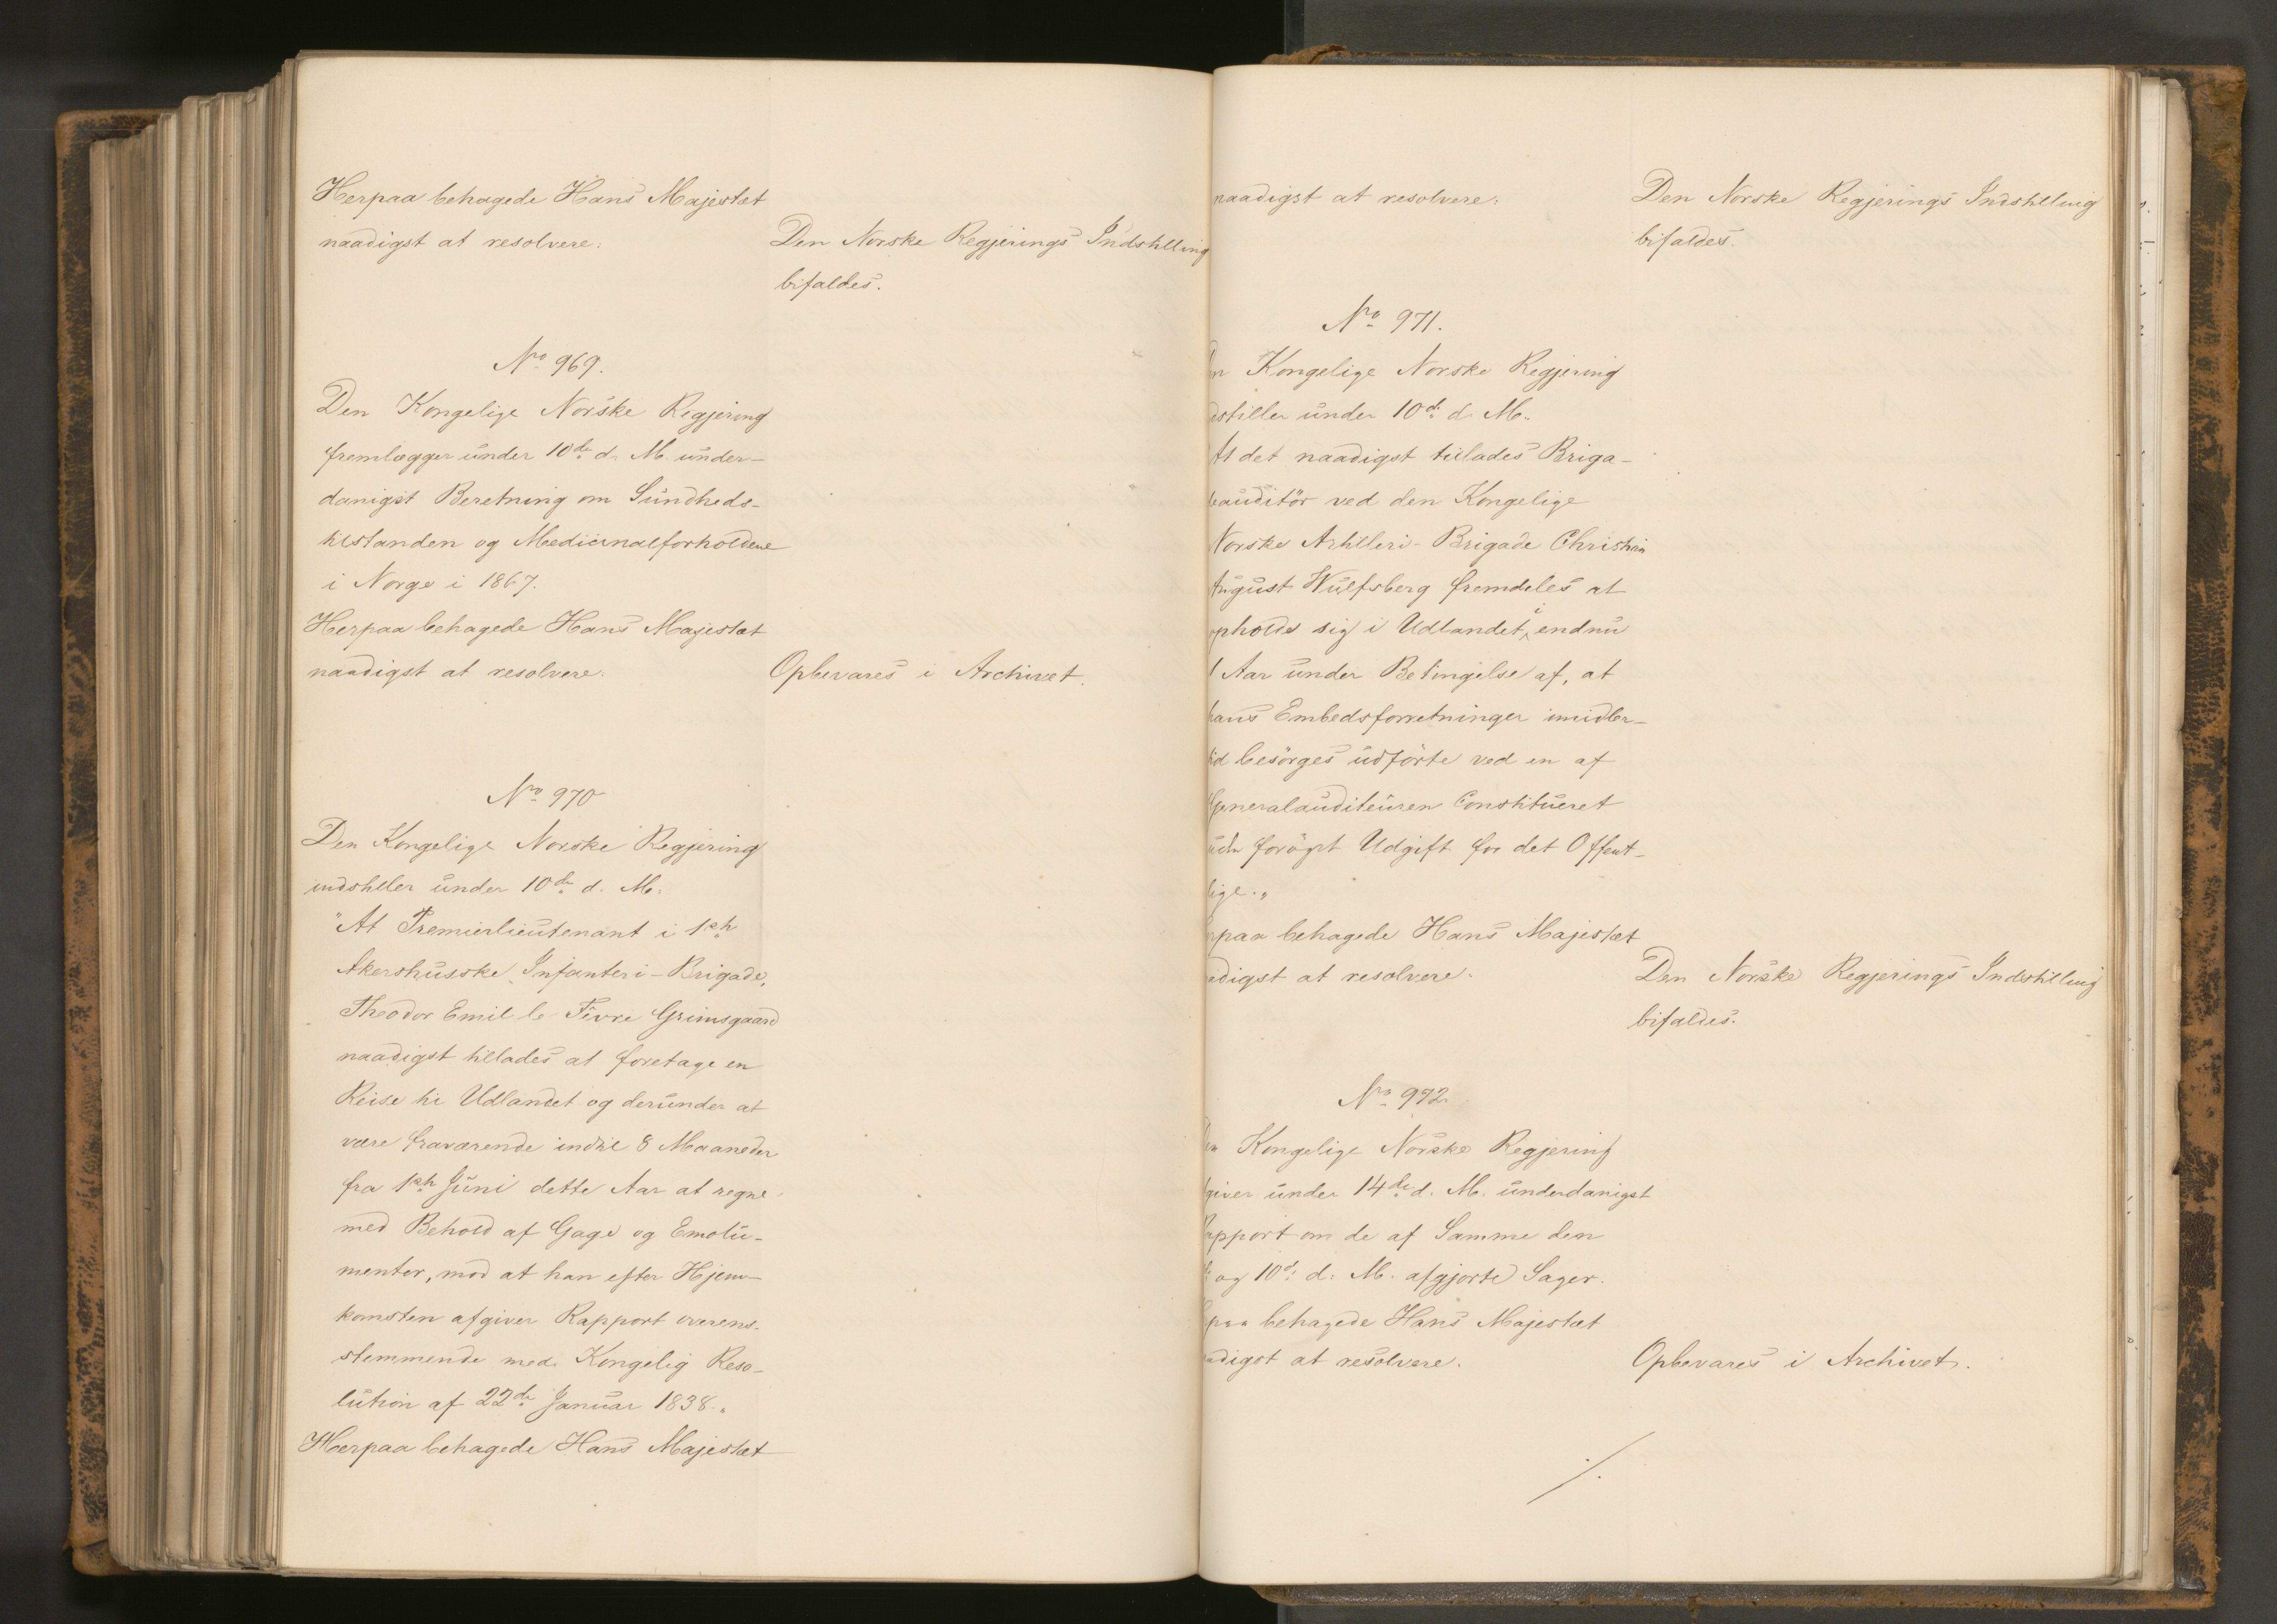 Herpaa behagede Hans Majestæt
naadigst at resolvere:
Den Norske Regjerings Indstilling
bifaldes.
No 969.
Den Kongelige Norske Regjering
fremlægger under 10de d. M. under-
danigst Beretning om Sundheds-
tilstanden og Medicinalforholdene
i Norge i 1867.
Herpaa behagede Hans Majestæt
naadigst at resolvere:
Opbevares i Archivet.
No 970
Den Kongelige Norske Regjering
indstiller under 10de d. M.
"At Premierlieutenant i 1ste
Akershusske Infanteri-Brigade,
Theodor Emil le Fevre Grimsgaard
naadigst tillades at foretage en
Reise til Udlandet og derunder at
være fraværende indtil 8 Maaneder
fra 1ste Juni dette Aar at regne
med Behold af Gage og Emolu-
menter, mod at han efter Hjem-
komsten afgiver Rapport overens-
stemmende med Kongelig Reso-
lution af 22de Januar 1838."
Herpaa behagede Hans Majestæt
naadigst at resolvere:
Den Norske Regjerings Indstilling
bifaldes.
No 971.
n Kongelige Norske Regjering
dstiller under 10de d. M.
At det naadigst tillades Briga-
eauditör ved den Kongelige
Norske Artilleri-Brigade Christian
August Wulfsberg fremdeles at
opholde sig i Udlandet i endnu
1 Aar under Betingelse af, at
hans Embedsforretninger imidler-
tid besörges udförte ved en af
Generalauditeuren Constitueret
uden foröget Udgift for det Offent-
lige."
rpaa behagede Hans Majestæt
adigst at resolvere:
Den Norske Regjerings Indstilling
bifaldes.
No 972.
en Kongelige Norske Regjering
fgiver under 14de d. M. underdanigst
Rapport om de af Samme den
og 10de d. M. afgjorte Sager.
rpaa behagede Hans Majestæt
adigst at resolvere:
Opbevares i Archivet.